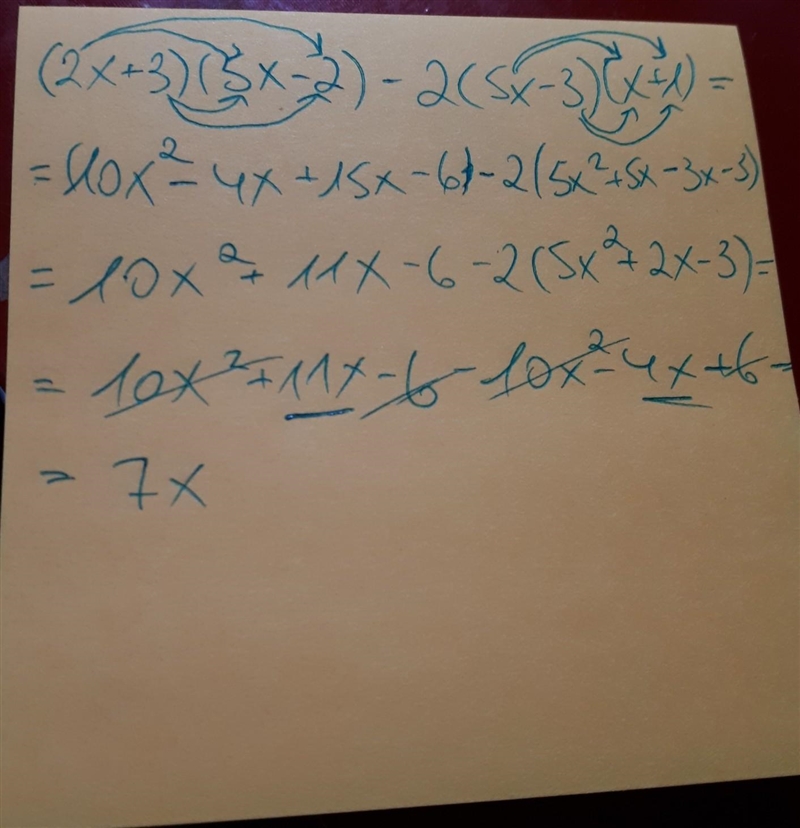 (2x+3)(5x-2) - 2(5x-3)(x+1) =
= (10x² - 4x + 15x - 6) - 2(5x² + 5x - 3x - 3)
= 10x² + 11x - 6 - 2(5x² + 2x - 3) =
= 10x² + 11x - 6 - 10x² - 4x + 6 =
= 7x